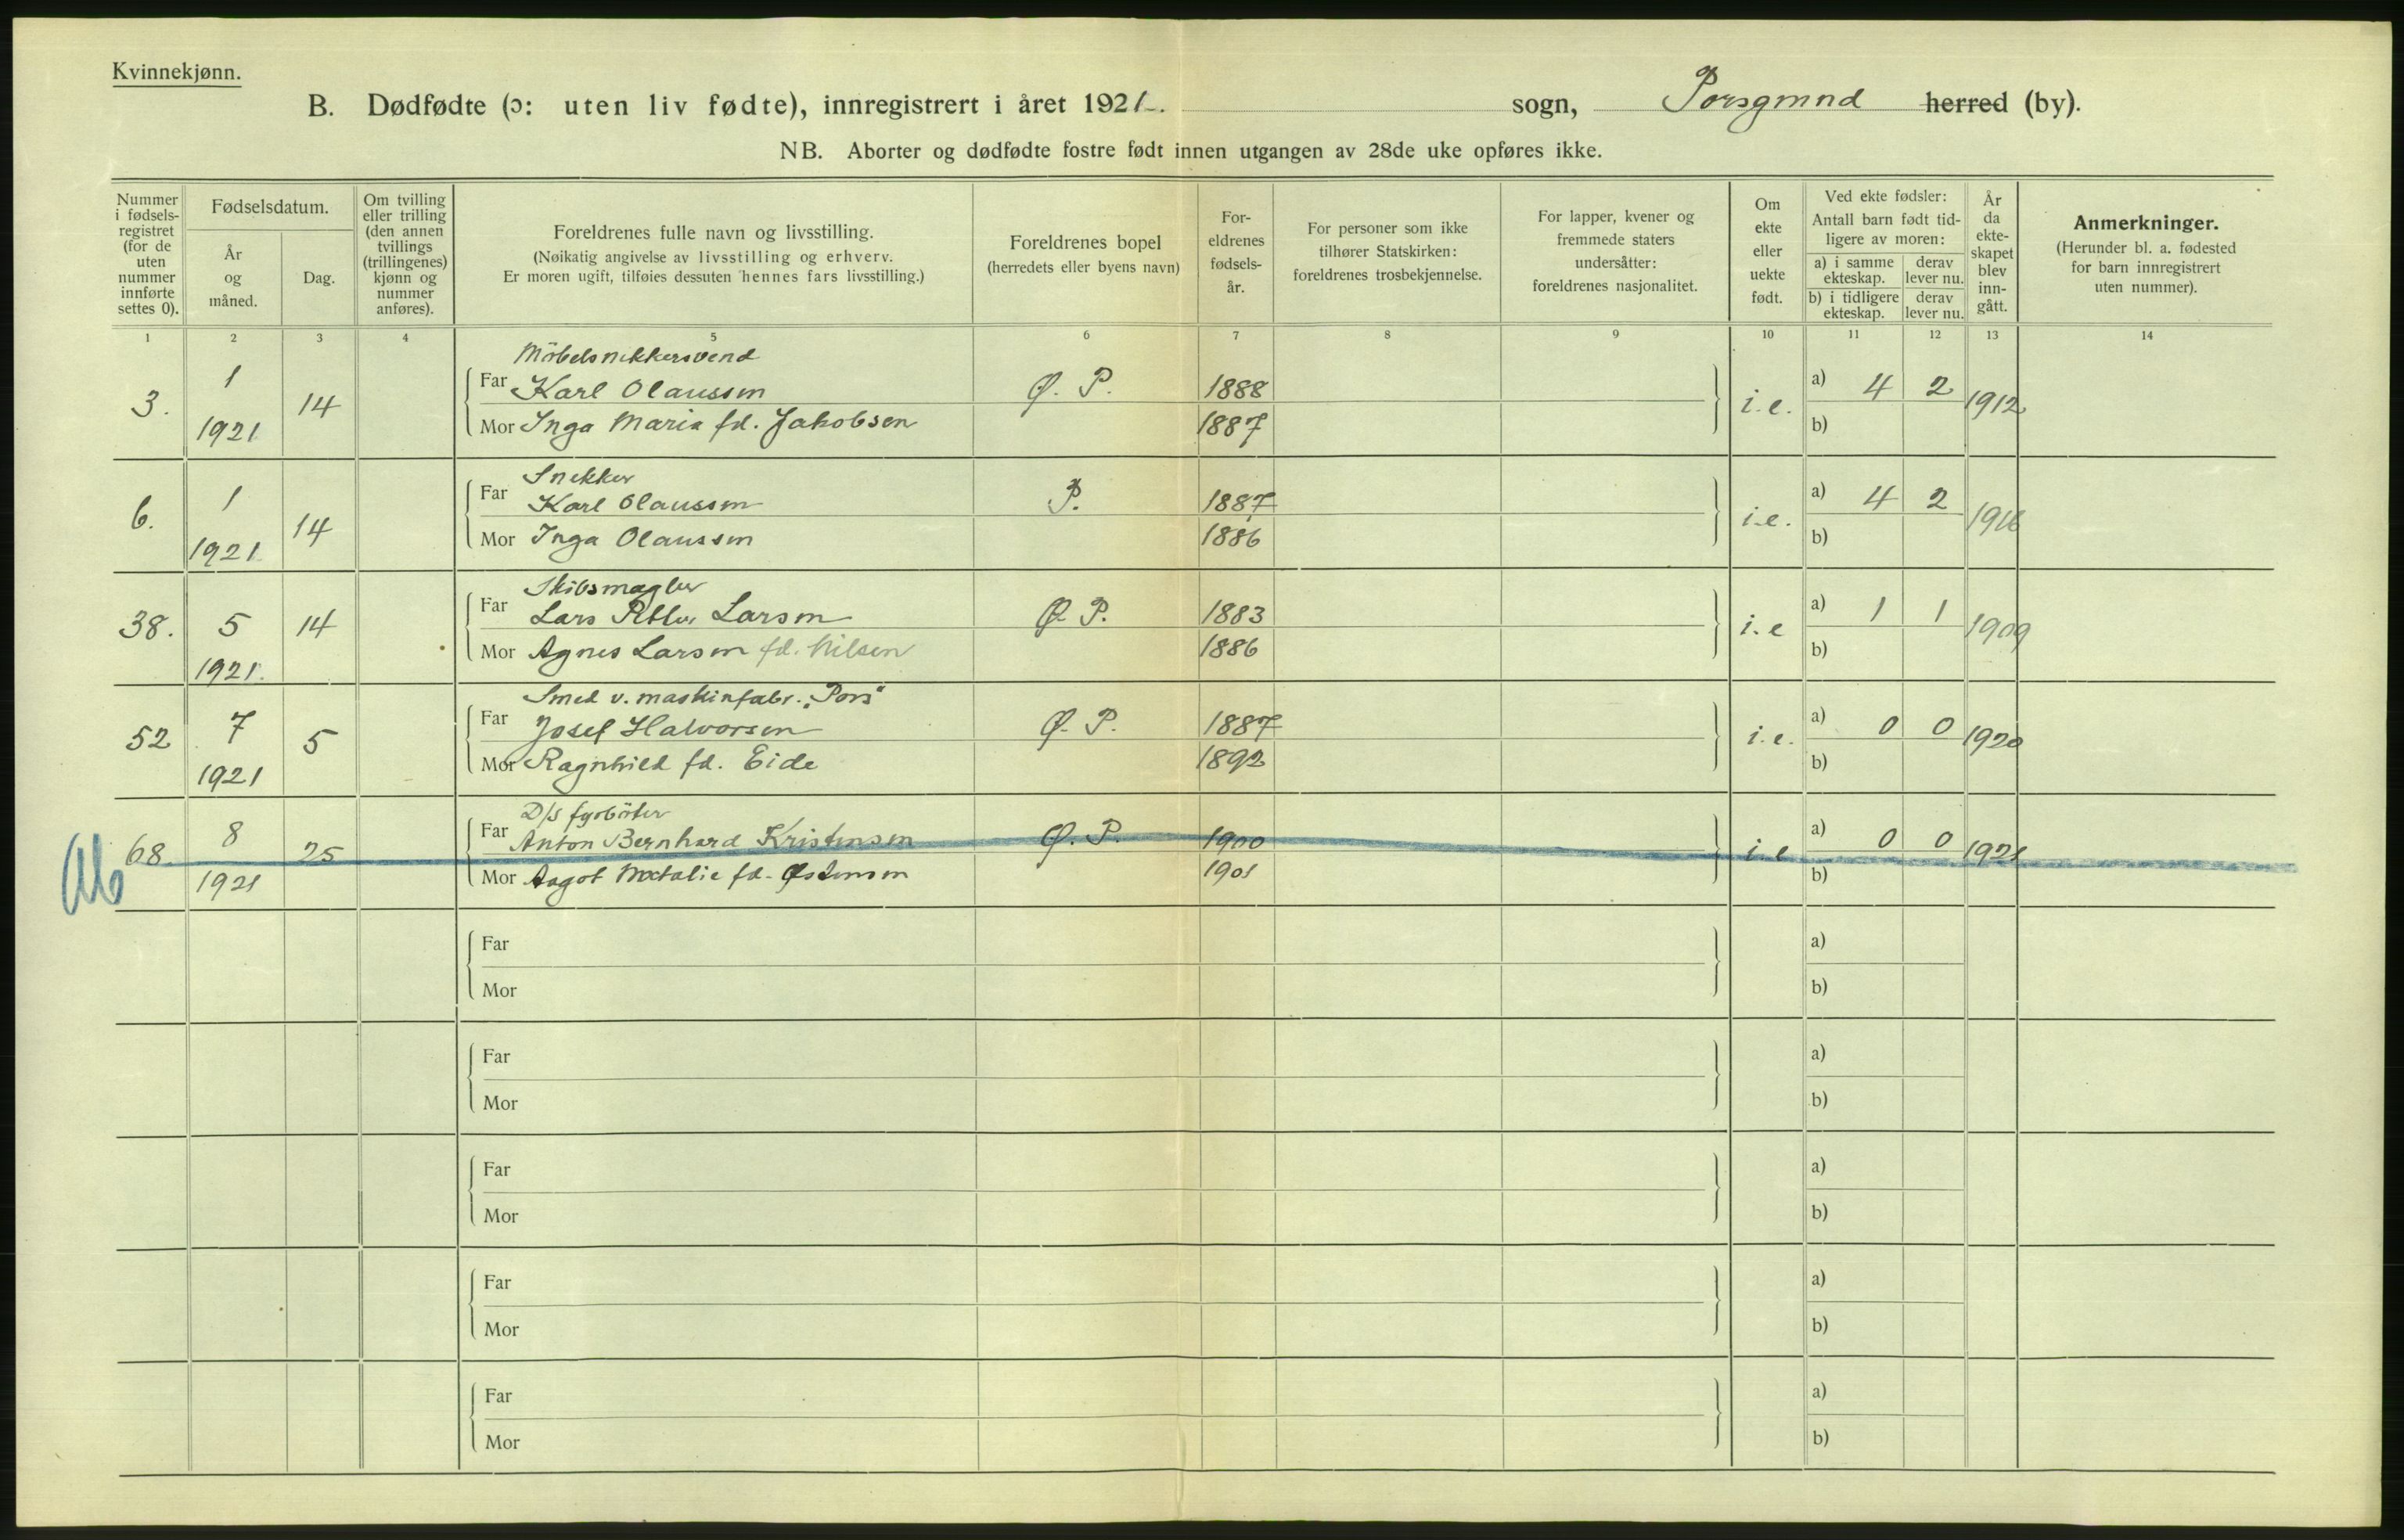 Kvinnekjønn.
B. Dødfødte (ɔ: uten liv fødte), innregistrert i året 1921. sogn, Porsgrund herred (by).
NB. Aborter og dødfødte fostre født innen utgangen av 28de uke opføres ikke.
Nummer i fødsels-registret (for de uten nummer innførte settes 0).
Fødselsdatum.
År og måned.
Dag.
Om tvilling eller trilling (den annen tvillings (trillingenes) kjønn og nummer anføres).
Foreldrenes fulle navn og livsstilling.
(Nøikatig angivelse av livsstilling og erhverv.
Er moren ugift, tilføies dessuten hennes fars livsstilling.)
Foreldrenes bopel
(herredets eller byens navn)
For-eldrenes fødsels-år.
For personer som ikke tilhører Statskirken: foreldrenes trosbekjennelse.
For lapper, kvener og fremmede staters undersåtter: foreldrenes nasjonalitet.
Om ekte eller uekte født.
Ved ekte fødsler:
Antall barn født tid-ligere av moren:
a) i samme ekteskap. derav lever nu.
b) i tidligere ekteskap. derav lever nu.
År da ekte-skapet blev inn-gått.
Anmerkninger.
(Herunder bl. a. fødested for barn innregistrert uten nummer).
1 2 3 4 5 6 7 8 9 10 11 12 13 14
Möbelsnekkersvend
3. 1 1921 14 Far Karl Olaussen Ø. P. 1888 i.e. a) 4 2 1912
Mor Inga Maria fd. Jakobsen 1887 b)
Snekker
6. 1 1921 14 Far Karl Olaussen P. 1887 i.e. a) 4 2 1916
Mor Inga Olaussen 1886 b)
Skibsmægler
38. 5 1921. 14 Far Lars Petter Larsen Ø. P. 1883 i.e a) 1 1 1909
Mor Agnes Larsen fd. Nilsen 1886 b)
Smed v. maskinfabr. „Pors"
52 7 1921 5 Far Josef Halvorsen Ø. P. 1887 i.e. a) 0 0 1920
Mor Ragnhild fd. Eide 1892 b)
D/S fyrböter
Ab 68 8 1921 25 Far Anton Bernhard Kristensen Ø. P. 1900 i.e a) 0 0 1921
Mor Aagot Natalie fd. Østensen 1901 b)
Far a)
Mor b)
Far a)
Mor b)
Far a)
Mor b)
Far a)
Mor b)
Far a)
Mor b)